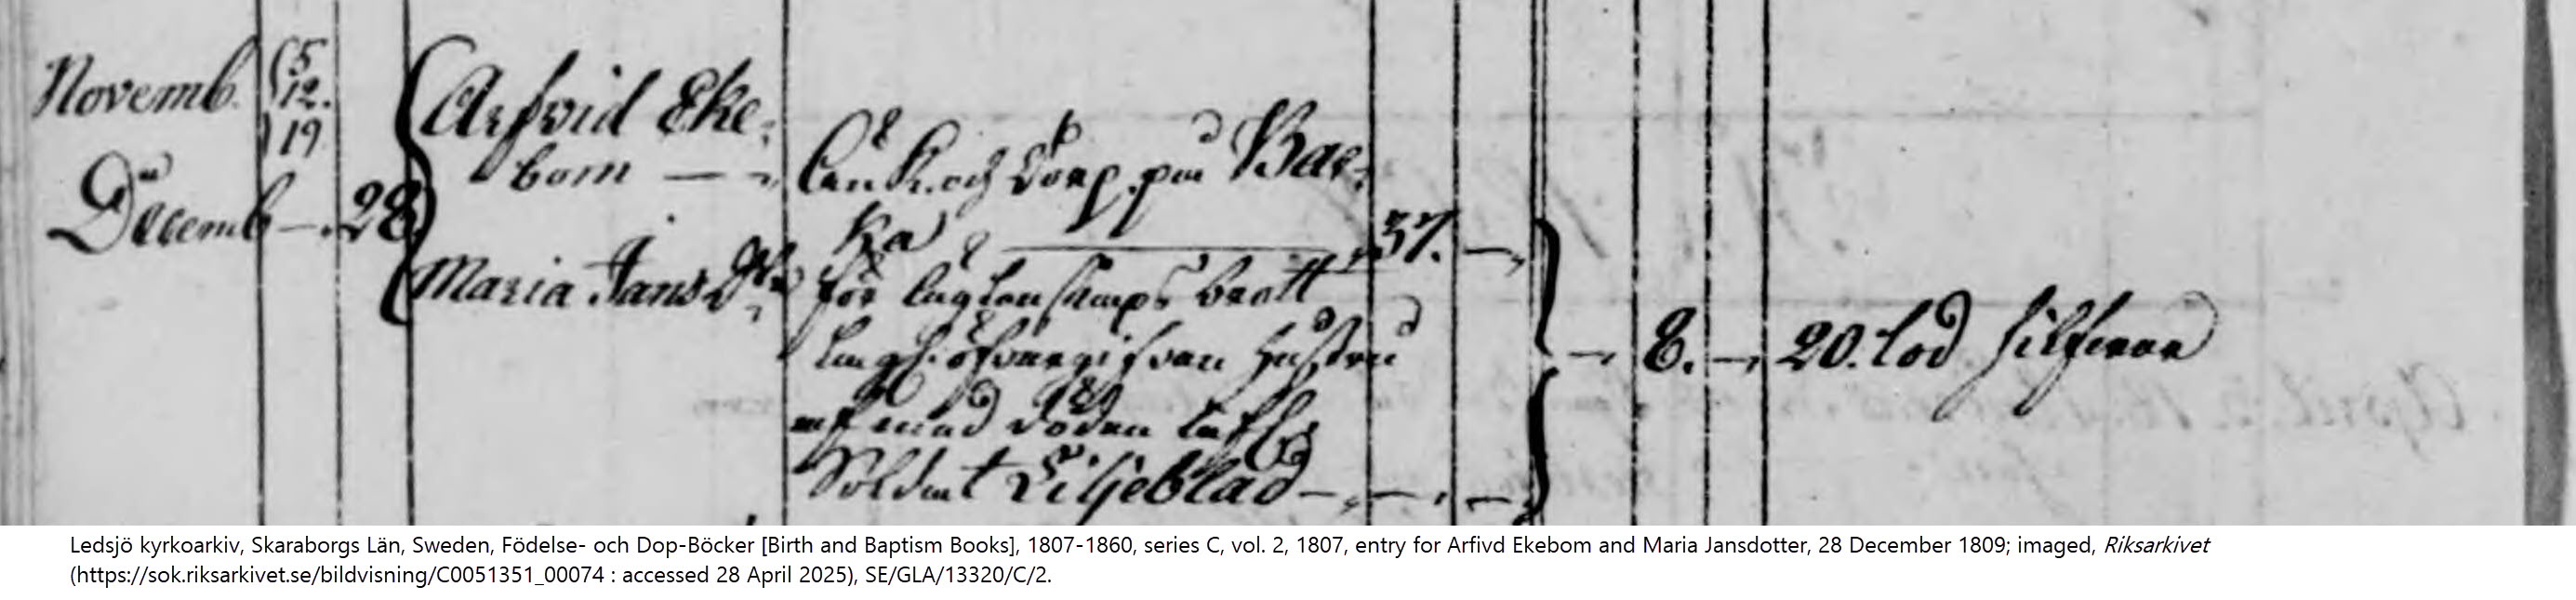 Novemb. 5
12.
19
Decemb — . 28.
Arfvid Eke-
bom — 
Maria Jans Dr
Enk. och Torp. på Bac-
ka — 37. —
för lägersmåls brott
öfvergifvan Hustru
med döden
Soldat Liljeblad —
— 8. — 20. lod silfver
Ledsjö kyrkoarkiv, Skaraborgs Län, Sweden, Födelse- och Dop-Böcker [Birth and Baptism Books], 1807-1860, series C, vol. 2, 1807, entry for Arfivd Ekebom and Maria Jansdotter, 28 December 1809; imaged, Riksarkivet
(https://sok.riksarkivet.se/bildvisning/C0051351_00074 : accessed 28 April 2025), SE/GLA/13320/C/2.